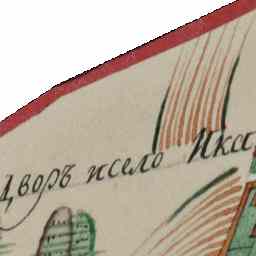 Дворъ исело Икса